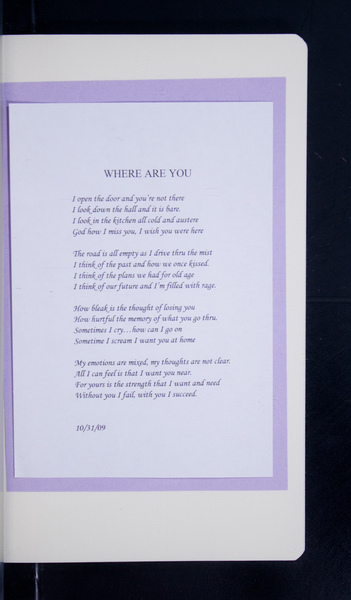 WHERE ARE YOU
I open the door and you're not there
I look down the hall and it is bare.
I look in the kitchen all cold and austere
God how I miss you, I wish you were here
The road is all empty as I drive thru the mist
I think of the past and how we once kissed.
I think of the plans we had for old age
I think of our future and I'm filled with rage.
How bleak is the thought of losing you
How hurtful the memory of what you go thru.
Sometimes I cry…how can I go on
Sometime I scream I want you at home
My emotions are mixed, my thoughts are not clear.
All I can feel is that I want you near.
For yours is the strength that I want and need
Without you I fail, with you I succeed.
10/31/09